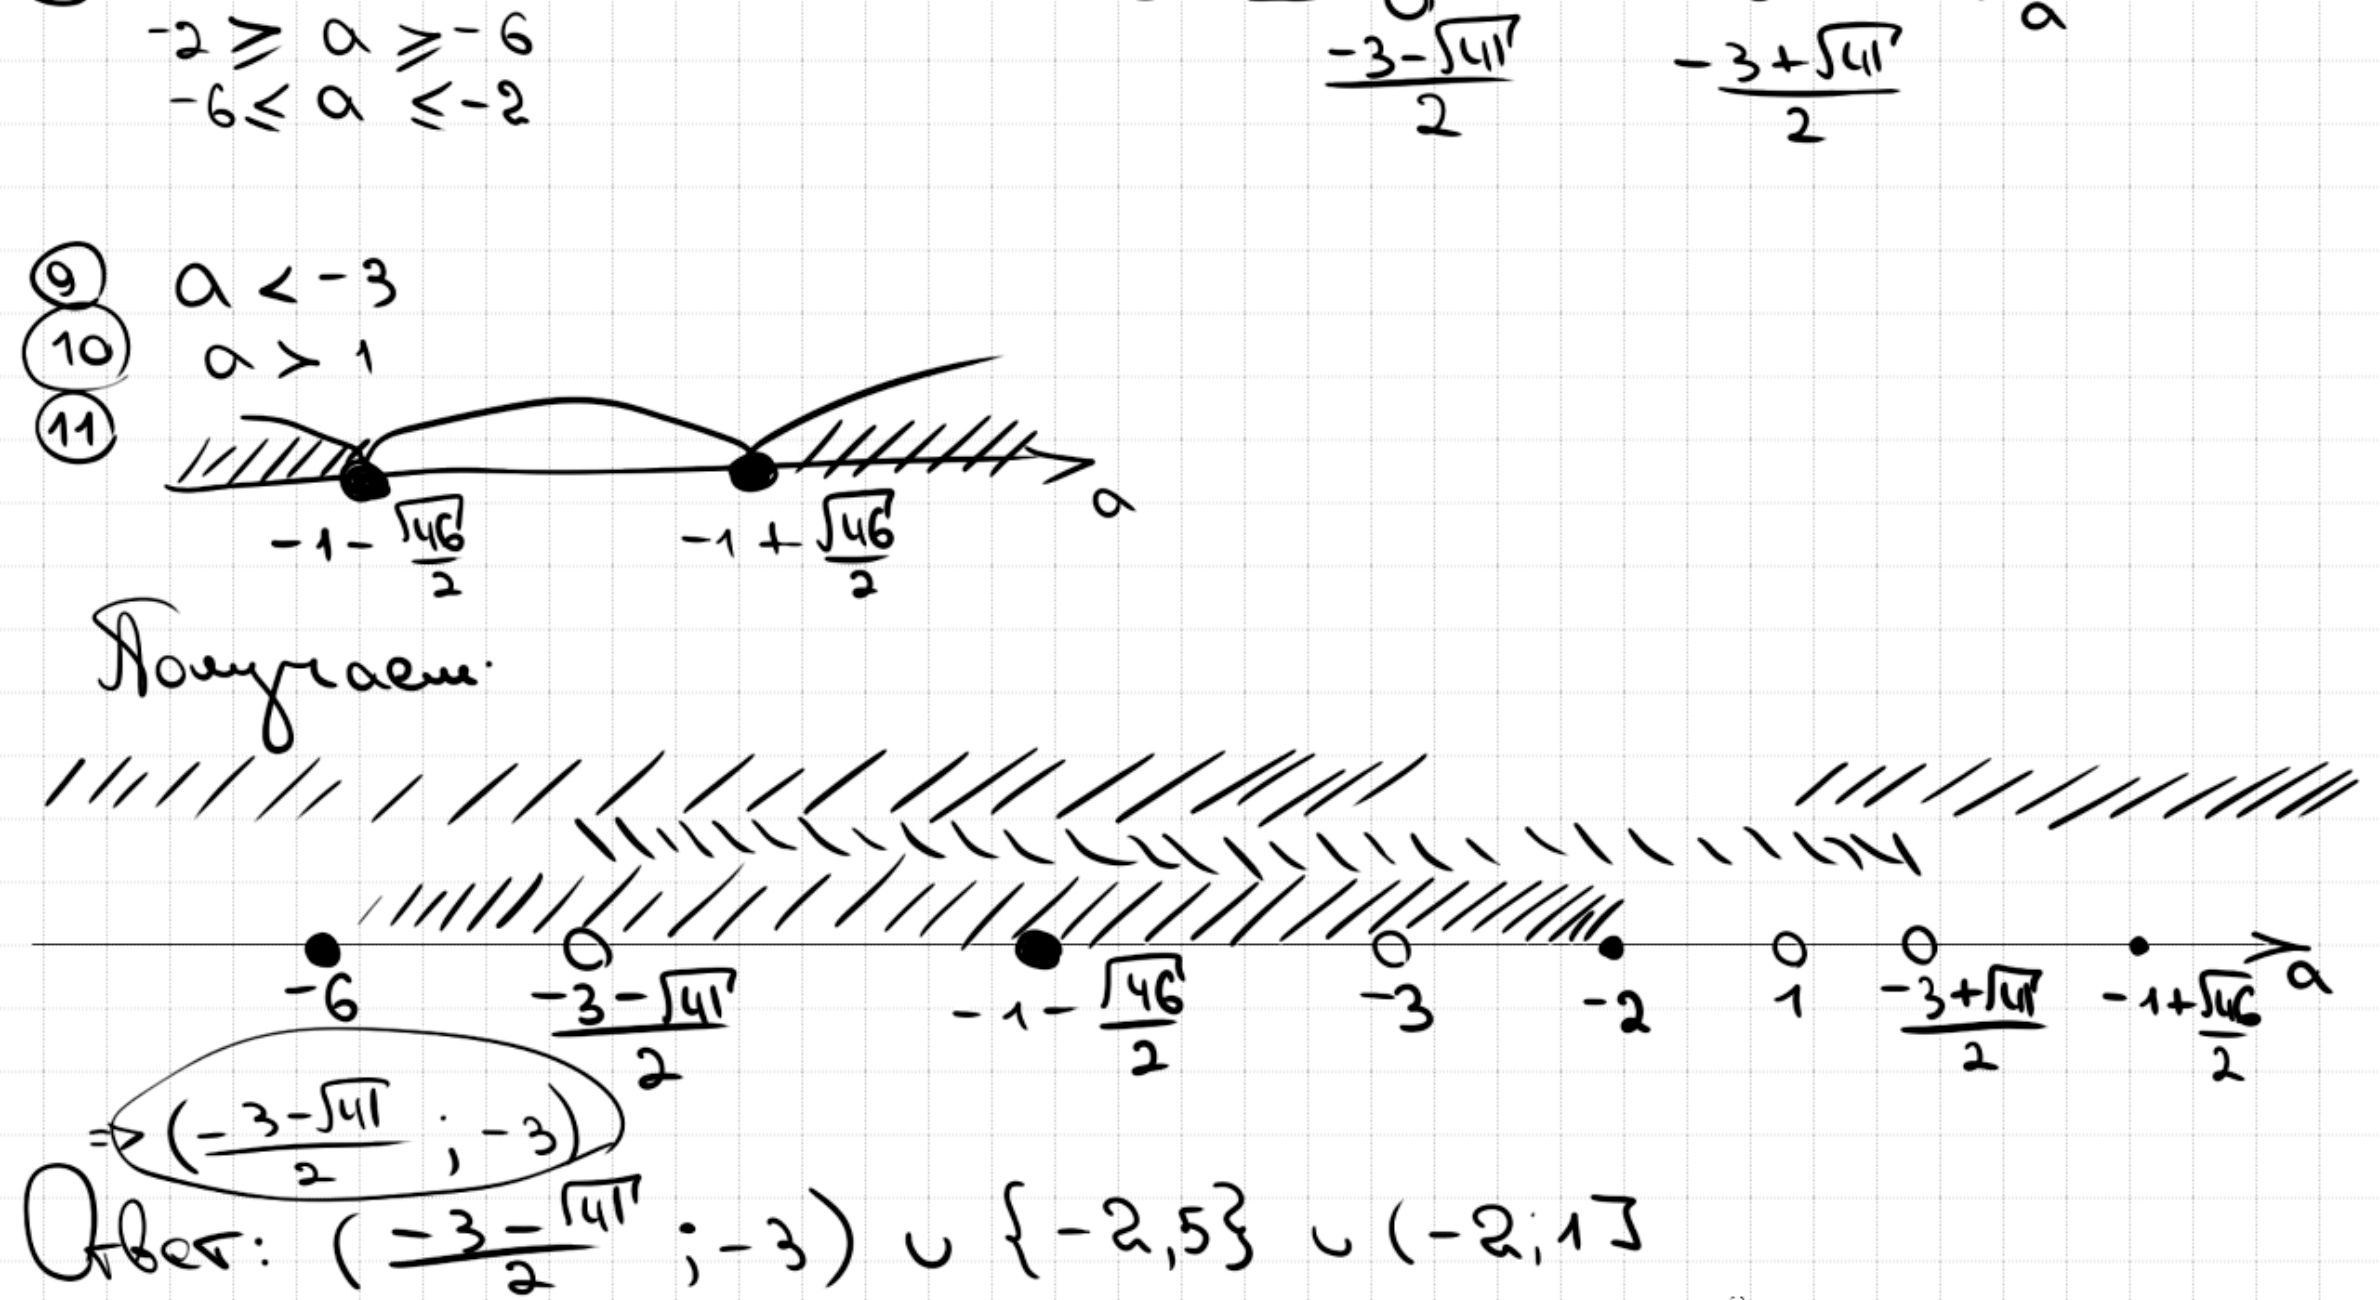 -2 ⩾ a ⩾ -6
-6 ⩽ a ⩽ -2
(-3-√41)/2 (-3+√41)/2 a
9 a < -3
10 a > 1
11
-1-√46/2 -1+√46/2 a
Получаем:
-6 (-3-√41)/2 -1-√46/2 -3 -2 1 (-3+√41)/2 -1+√46/2 a
=> ((-3-√41)/2 ; -3)
Ответ: ((-3-√41)/2 ; -3) ∪ {-2,5} ∪ (-2; 1]